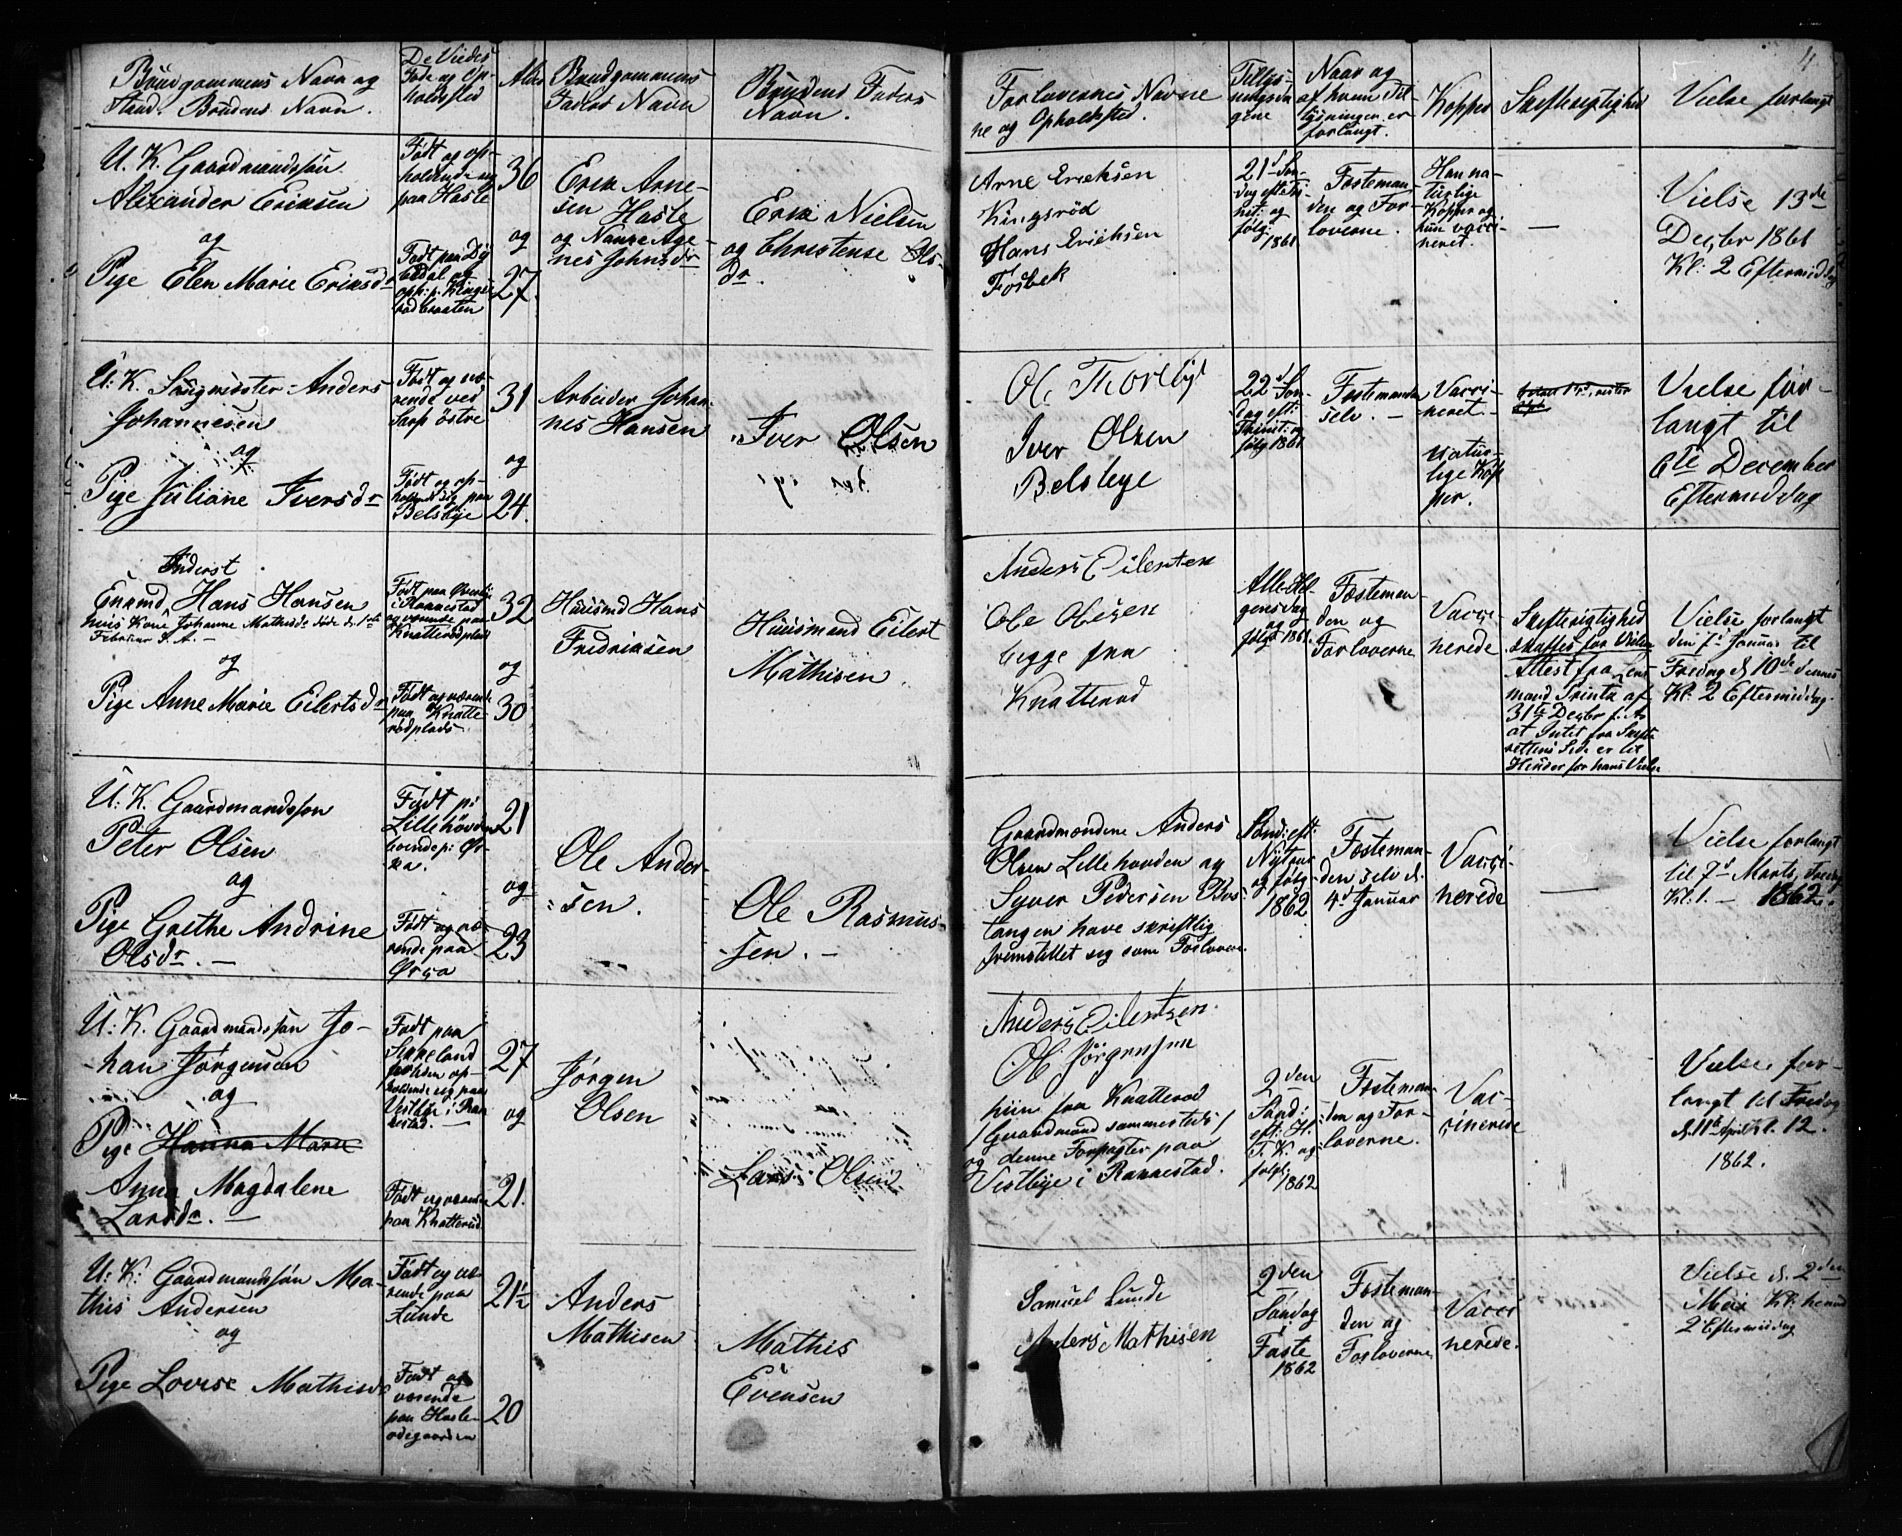 Brudgommens Navn og
Stand. Brudens Navn.
De Viedes
Føde og Op-
holdsted
Alder
Brudgommens
Faders Navn
Brudens Faders
Navn.
Forlovernes Navne
og Opholdsted.
Tillys-
ningsda-
gene
Naar og
af hvem Til-
lysningen er
forlangt.
Kopper
Skifterigtighed
Vielse forlangt
4
U. K. Gaardmandssøn
Alexander Eriksen
og
Pige Elen Marie Eriksdr
Født og op-
holdende sig
paa Hasle
Født paa
oph: p. Kings-
rødbraaten
36
og
27.
Erik Arne-
sen Hasle
og Navne Age-
nes Johnsdr
Erik Nielsen
og Christense Ols-
dr.
Arne Erichsen
Kingsrød
Hans Erichsen
Fosbek
21d Søn-
dag eft Tri-
nit: og
følg:
1861
Fosteman-
den og For-
loverne.
Han na-
turlige
Kopper og
hun vacci-
neret.
—
Vielse 13de
Decbr 1861
Kl: 2 Eftermiddag
U. K. Saugmester Anders
Johannesen
og
Pige Juliane Iversdr
Født og væ-
rende ved
Sarp østre
Født og op-
holdende sig paa
Belsbye
31
og
24.
Arbeider Johan-
nes Hansen
Iver Olsen
Ole Thorsbye
Iver Olsen
Belsbye
22d Søn-
dag eft:
Trinit: og
følg 1861
Fostemanden
selv. —
Vacci-
neret
Natur-
lige Kop-
per.
Vielse for-
langt til
6te December
Eftermiddag
Inderst
Enkemd Hans Hansen
hvis Kone Johanne Mathisdr døde d. 1ste
Februar f. A. —
og
Pige Anne Marie Eilertsdr
Født paa
i Rakkestad
og værende paa
Knatterødplads
Født og værende
paa Knatte-
rødplads
32
og
30
Huusmd Hans
Fredriksen
Huusmand Eilert
Mathisen
Anders Eilertsen
Ole Olesen
begge fra
Knatterød
Alle Hel-
gensdag
og
følg 1861.
Fosteman-
den og
Forloverne
Vacci-
nerede
Skifterigtighed
skaffes før Vielsen
Attest fra Lens-
mand Printz af
31te Decbr f. A.
at Intet fra Skifte-
rettens Side er til
Hinder for hans Vielse
Vielse forlangt
den 7d Januar til
Fredag d. 10de dennes
Kl: 2 Eftermiddag.
U. K. Gaardmandssøn
Peter Olsen
og
Pige Grethe Andrine
Olsdr. —
Født pi
Lillehovden
boende pi Ør-
ka.
Født og væ-
rende paa
21
og
23
Ole Ander-
sen.
Ole Rasmus-
sen. —
Gaardmændene Anders
Olsen Lillehovden og
Syver Pedersen Bos-
tangen have skriftlig
fremstillet sig som Forlovere.
Sønd: eft:
Nytaar
og følg
1862
Fosteman-
den selv d.
4d Januar
Vacci-
nerede
—
Vielse forlangt
til 7d Marts, Fredag
Kl. 1. — 1862.
U. K. Gaardmandssøn Jo-
han Jørgensen
og
Pige Hanna Marie
Anna Magdalene
Larsdr. —
Født paa
op-
holdende sig paa
Vestbye i Rak-
kestad. —
Født og værende
paa Knatterød.
27
og
21.
Jørgen
Olsen
Lars Olsen
Anders Eilertsen.
Ole Jørgensen
hiin fra Knatterød
/ Gaardmand sammesteds /
og denne Forpagter paa
Vestbye i Rakkestad.
2den
Sønd:
eft: H.
T. K. og
følg:
1862
Fosteman-
den og For-
loverne.
Vac-
cinerede
Vielse for-
langt til Fredag
d. 11te April Kl. 12.
1862.
U. K. Gaardmandssøn Ma-
this Andersen
og
Pige Lovise Mathisdr
Født og væ-
rende paa
Lunde
Født og
værende
paa Hasle-
ødegaarden
21½
20
Anders
Mathisen
Mathis
Evensen
Samuel Lunde
Anders Mathisen
2den
Søndag
i
Faste
1862
Fosteman-
den og
Forloverne
Vacci-
nerede.
Vielse d. 2den
Mai Kl. henved
2 Eftermiddag